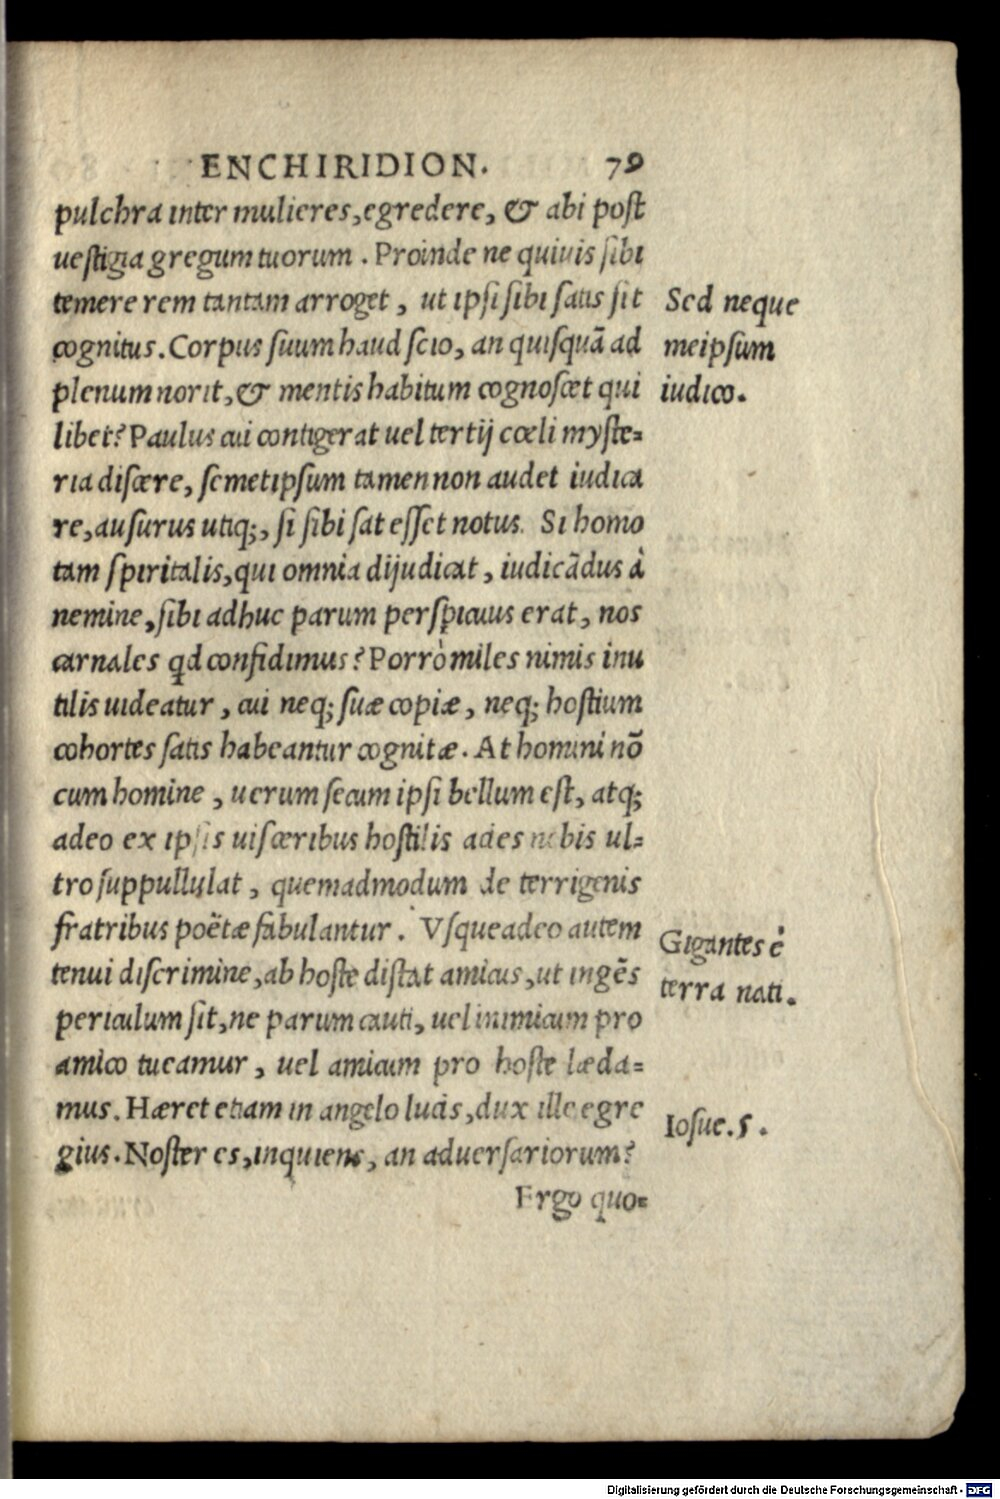 ENCHIRIDION. 79
pulchra inter mulieres, egredere, & abi post
uestigia gregum tuorum. Proinde ne quiuis sibi
temere rem tantam arroget, ut ipsi sibi satis sit
cognitus. Corpus suum haud scio, an quisquā ad
plenum norit, & mentis habitum cognoscet qui
libet? Paulus cui contigerat uel tertij cœli myste=
ria discere, semetipsum tamen non audet iudica
re, ausurus utiq;, si sibi sat esset notus. Si homo
tam spiritalis, qui omnia dijudicat, iudicādus à
nemine, sibi adhuc parum perspicuus erat, nos
carnales qd confidimus? Porrò miles nimis inu
tilis uideatur, cui neq; suæ copiæ, neq; hostium
cohortes satis habeantur cognitæ. At homini nō
cum homine, uerum secum ipsi bellum est, atq;
adeo ex ipsis uisceribus hostilis acies nobis ul=
tro suppullulat, quemadmodum de terrigenis
fratribus poëtæ fabulantur. Vsqueadeo autem
tenui discrimine, ab hoste distat amicus, ut ingēs
periculum sit, ne parum cauti, uel inimicum pro
amico tueamur, uel amicum pro hoste læda=
mus. Hæret etiam in angelo lucis, dux ille egre
gius. Noster es, inquiens, an aduersariorum?
Ergo quo=
Sed neque
meipsum
iudico.
Gigantes è
terra nati.
Iosue. 5.
Digitalisierung gefördert durch die Deutsche Forschungsgemeinschaft - DFG